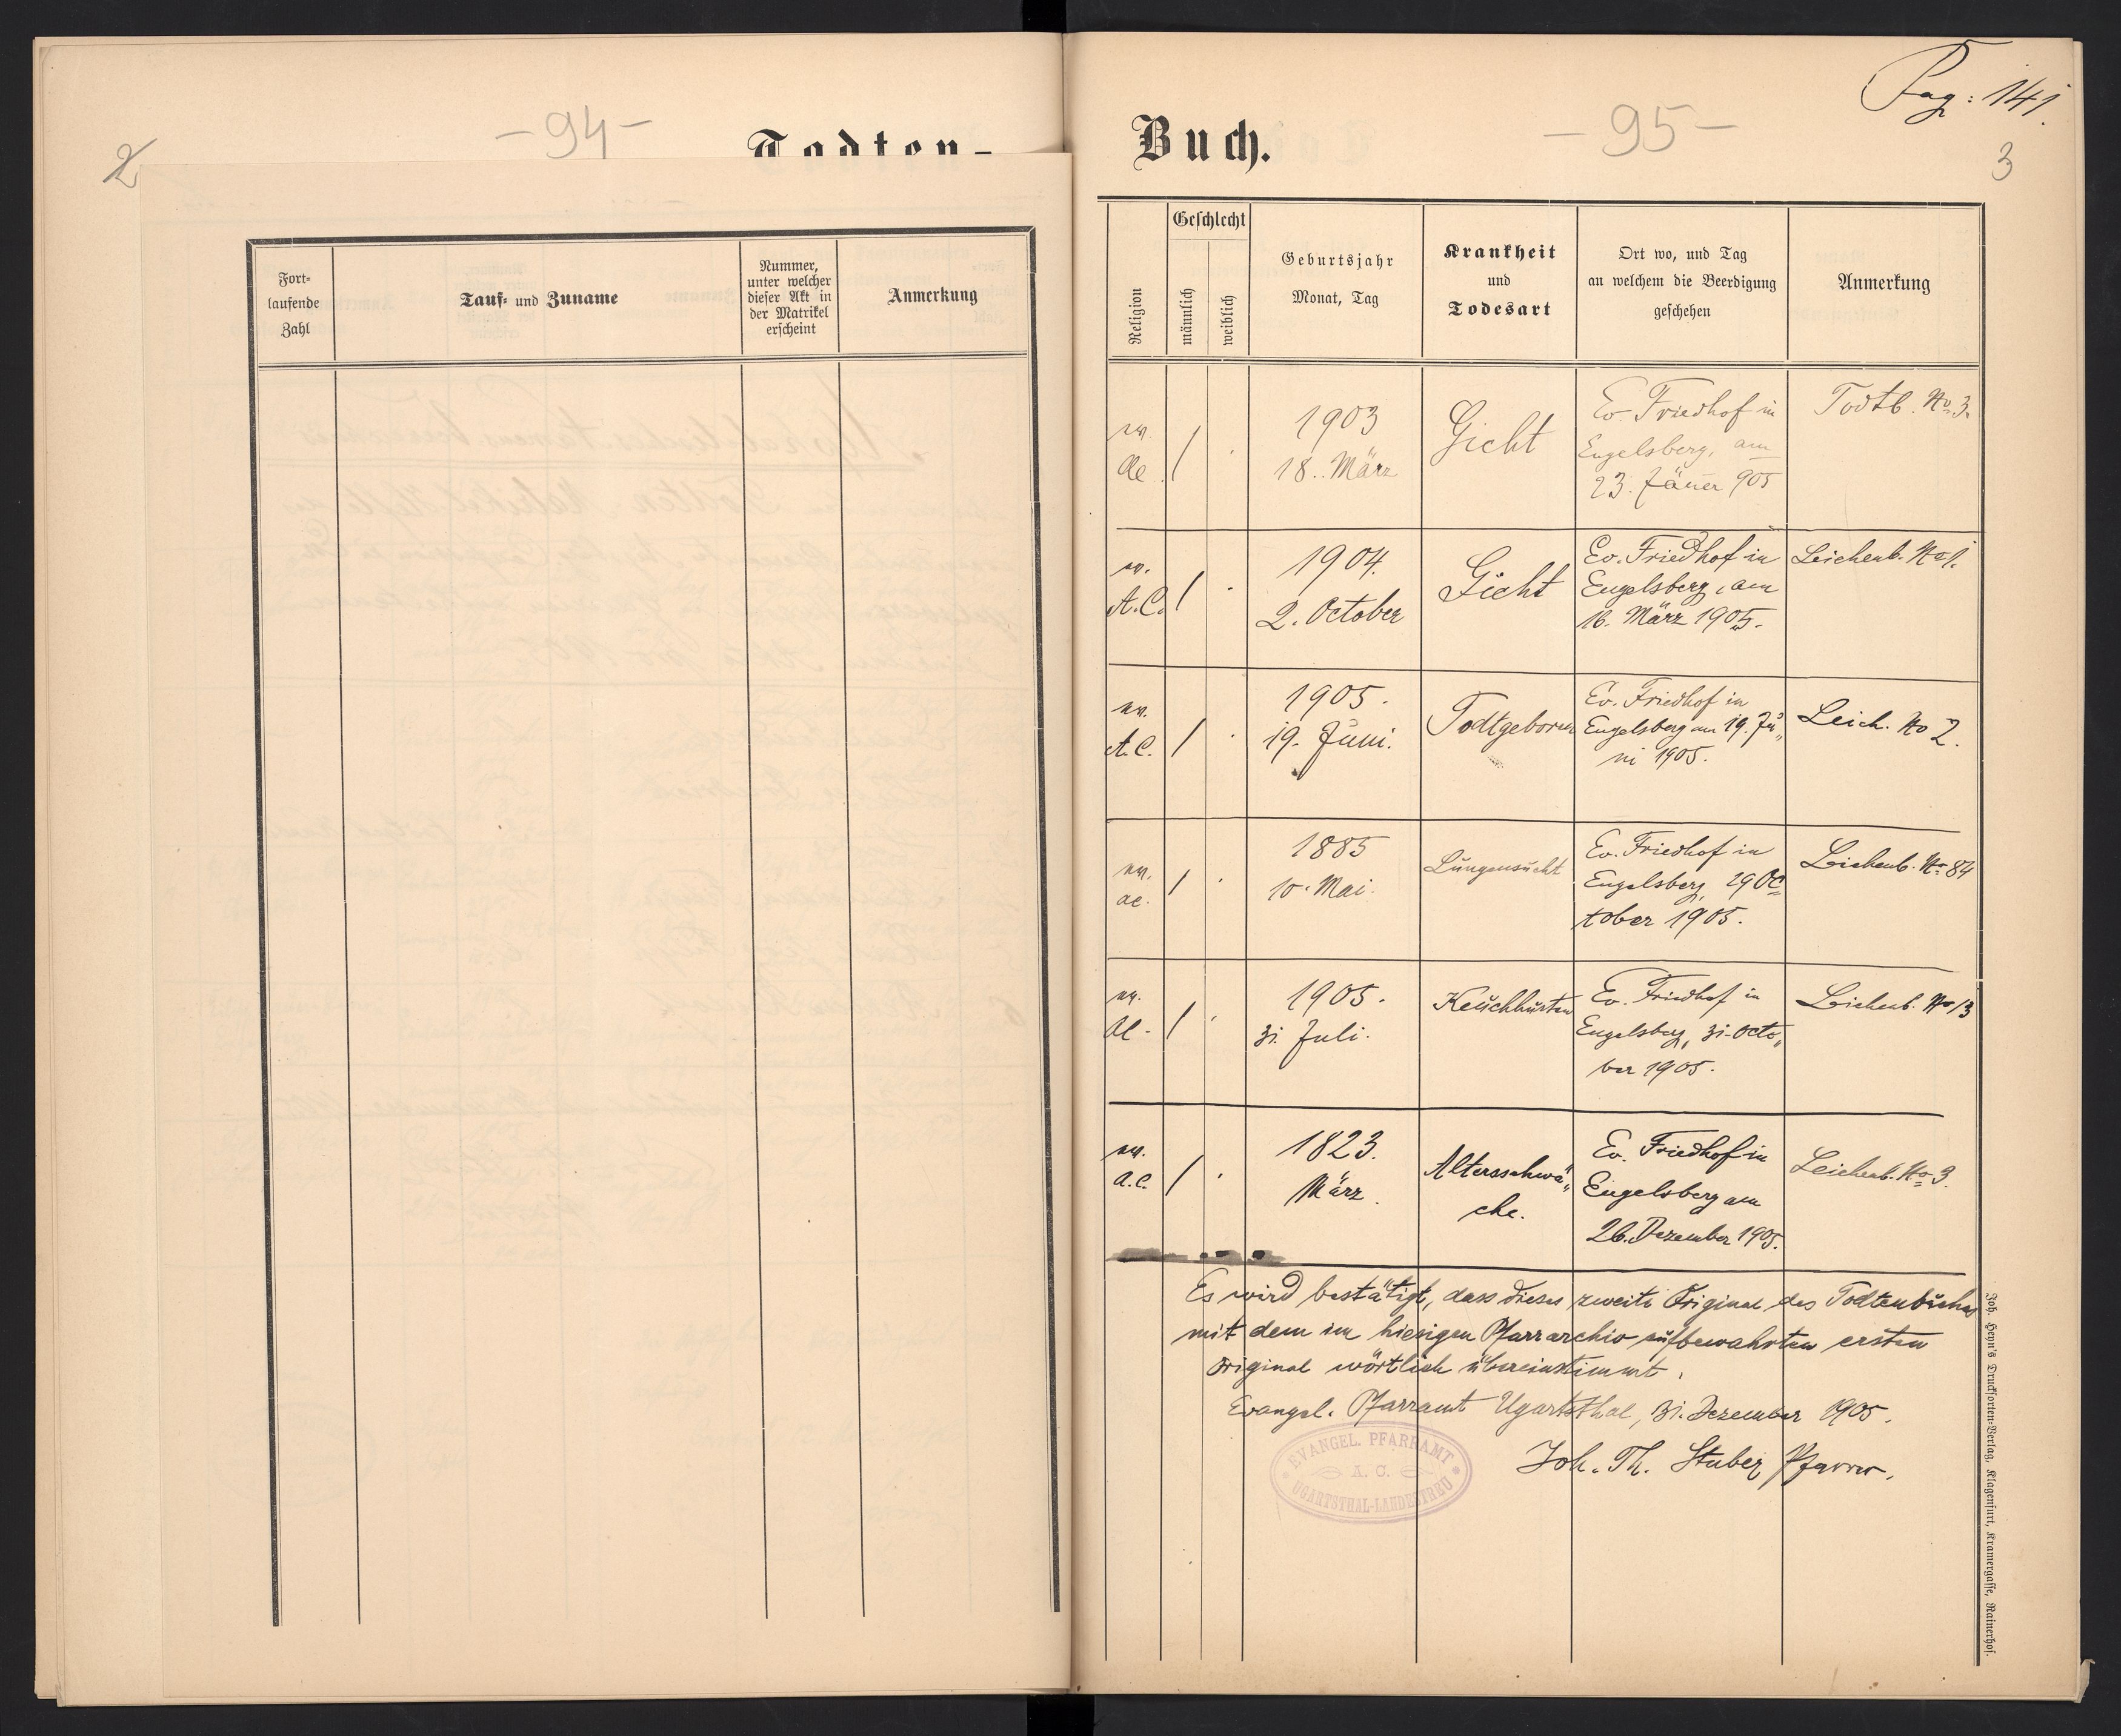 -94-
2
Todten-
Fort-
laufende
Zahl
Tauf- und Zuname
Nummer,
unter welcher
dieser Akt in
der Matrikel
erscheint
Anmerkung
Pag: 141.
-95-
3
Buch.
Religion
Geschlecht
männlich
weiblich
Geburtsjahr
Monat, Tag
Krankheit
und
Todesart
Ort wo, und Tag
an welchem die Beerdigung
geschehen
Anmerkung
ev.
AC
/
1903
18. März
Gicht
Ev. Friedhof in
Engelsberg, am
23. Jäner 905
Todtb. No 3.
ev.
A.C.
/
1904.
2. October
Gicht
Ev. Friedhof in
Engelsberg, am
16. März 1905.
Leichenb. No 1.
ev.
A.C.
/
1905.
19. Juni.
Todtgeboren
Ev. Friedhof in
Engelsberg am 19. Ju„
ni 1905.
Leich. No 2.
ev.
ac.
/
1885
10. Mai.
Lungensucht
Ev. Friedhof in
Engelsberg, 29 Oc=
tober 1905.
Leichenb. No 84
ev.
AC.
/
1905.
31. Juli.
Keuchhusten
Ev. Friedhof in
Engelsberg, 31. Octo„
ber 1905.
Leichenb. No 13
ev.
a.c.
/
1823.
März.
Altersschwä„
che.
Ev. Friedhof in
Engelsberg am
26. Dezember 1905.
Leichenb. No 3.
Es wird bestätigt, dass dieses zweite Original des Todtenbuches
mit dem im hiesigen Pfarrarchiv aufbewahrten ersten
Original wörtlich übereinstimmt.
Evangel. Pfarramt Ugartsthal, 31. Dezember 1905.
Joh. Th. Stuber Pfarrer.
EVANGEL. PFARRAMT
A. C.
UGARTSTHAL-LANDESTREU
Joh. Heyn's Drucksorten-Verlag, Klagenfurt, Kramergasse, Rainerhof.